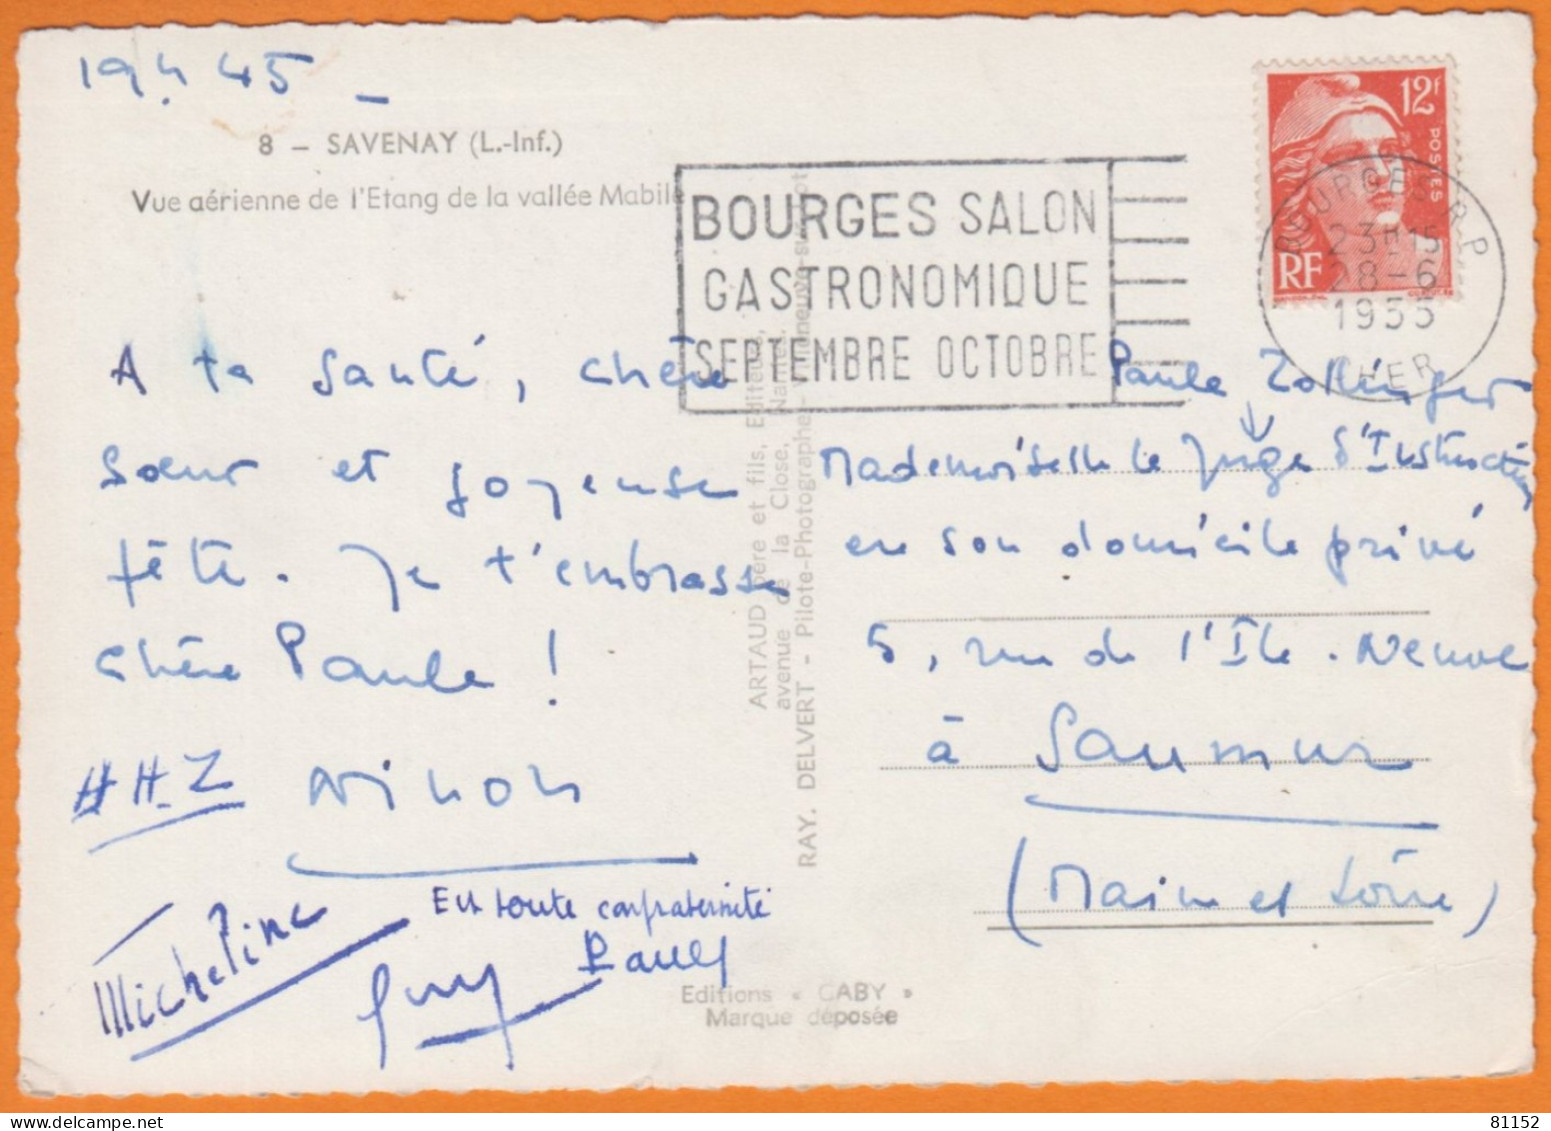 19 h 45 _
8 – SAVENAY (L.-Inf.)
Vue aérienne de l'Etang de la vallée Mabile
BOURGES SALON
GASTRONOMIQUE
SEPTEMBRE OCTOBRE
12F
POSTES
RF
BOURGES R.P
23H15
28-6
1953
CHER
A ta santé, chère
sœur et joyeuse
fête. Je t'embrasse
chère Paule !
HHZ Ninon
Micheline
En toute confraternité
Guy Pauly
ARTAUD père et fils, Editeurs,
avenue de la Close, Nantes.
RAY. DELVERT – Pilote-Photographe – Villeneuve-sur-Lot
Editions « GABY »
Marque déposée
Paule Zollinger
Mademoiselle le Juge d'Instruction
en son domicile privé
5, rue de l'Ile-Neuve
à Saumur
(Maine et Loire)
81152